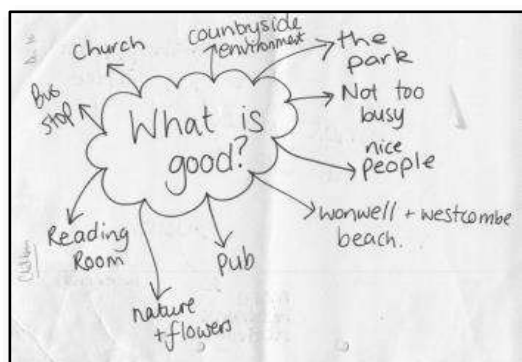 What is
good?
Church
countryside
environment
the
park
Not too
busy
nice
people
wonwell + westcombe
beach.
pub
nature
+ flowers
Reading
Room
Bus
stop